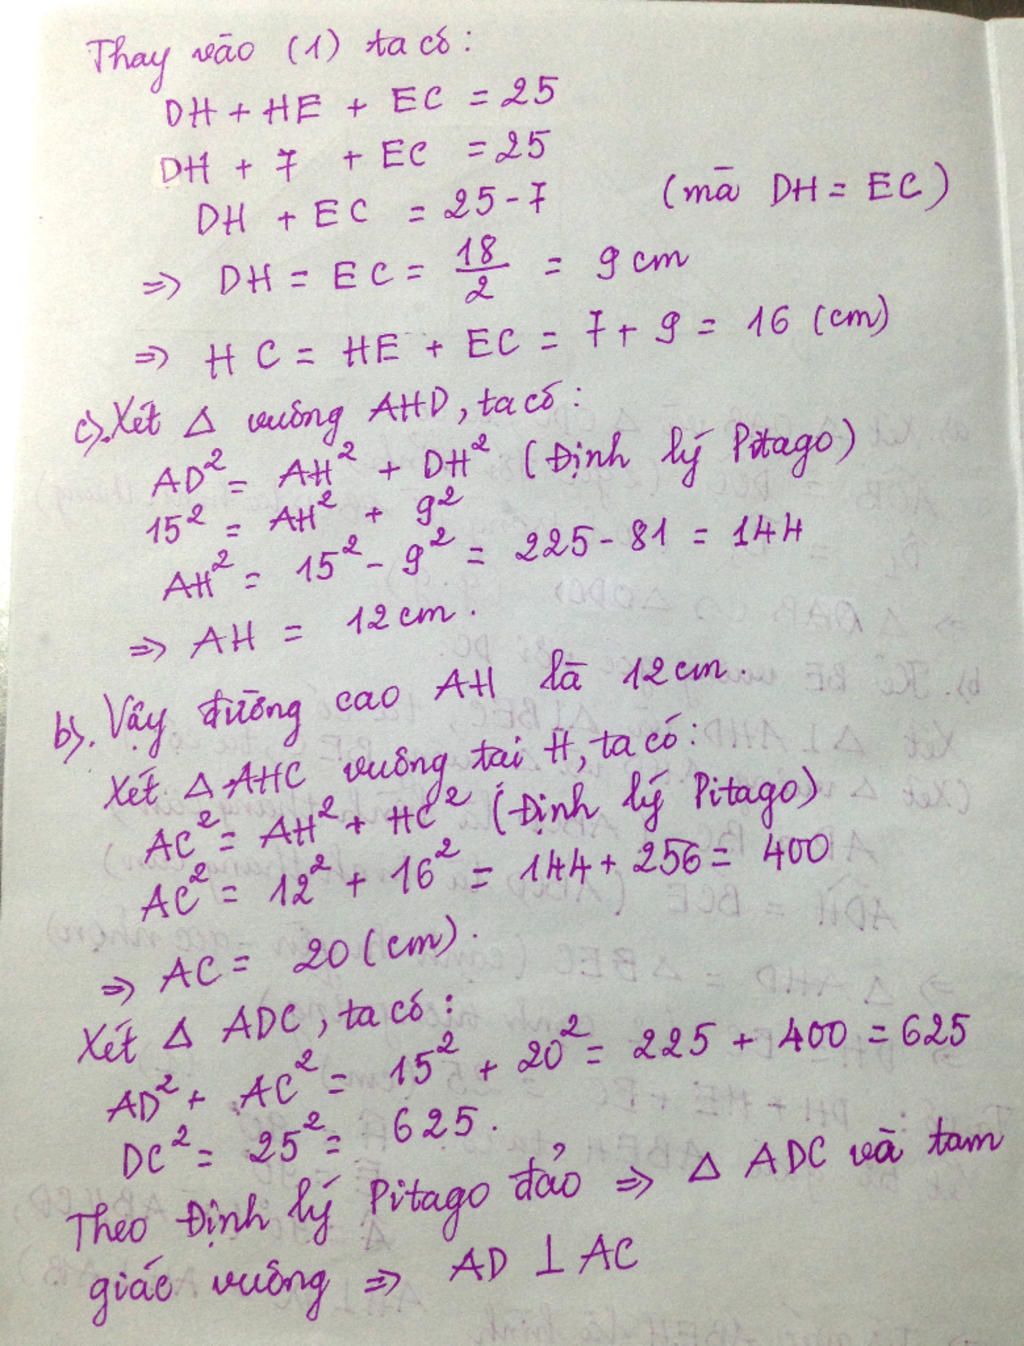 Thay vào (1) ta có:
DH + HE + EC = 25
DH + 7 + EC = 25
DH + EC = 25 - 7 (mà DH = EC)
=> DH = EC = 18/2 = 9 cm
=> HC = HE + EC = 7 + 9 = 16 (cm)
c). Xét Δ vuông AHD, ta có:
AD² = AH² + DH² (Định lý Pitago)
15² = AH² + 9²
AH² = 15² - 9² = 225 - 81 = 144
=> AH = 12 cm.
b). Vậy đường cao AH là 12 cm.
Xét Δ AHC vuông tại H, ta có:
AC² = AH² + HC² (Định lý Pitago)
AC² = 12² + 16² = 144 + 256 = 400
=> AC = 20 (cm).
Xét Δ ADC, ta có:
AD² + AC² = 15² + 20² = 225 + 400 = 625
DC² = 25² = 625.
Theo Định lý Pitago đảo => Δ ADC và tam
giác vuông => AD ⊥ AC